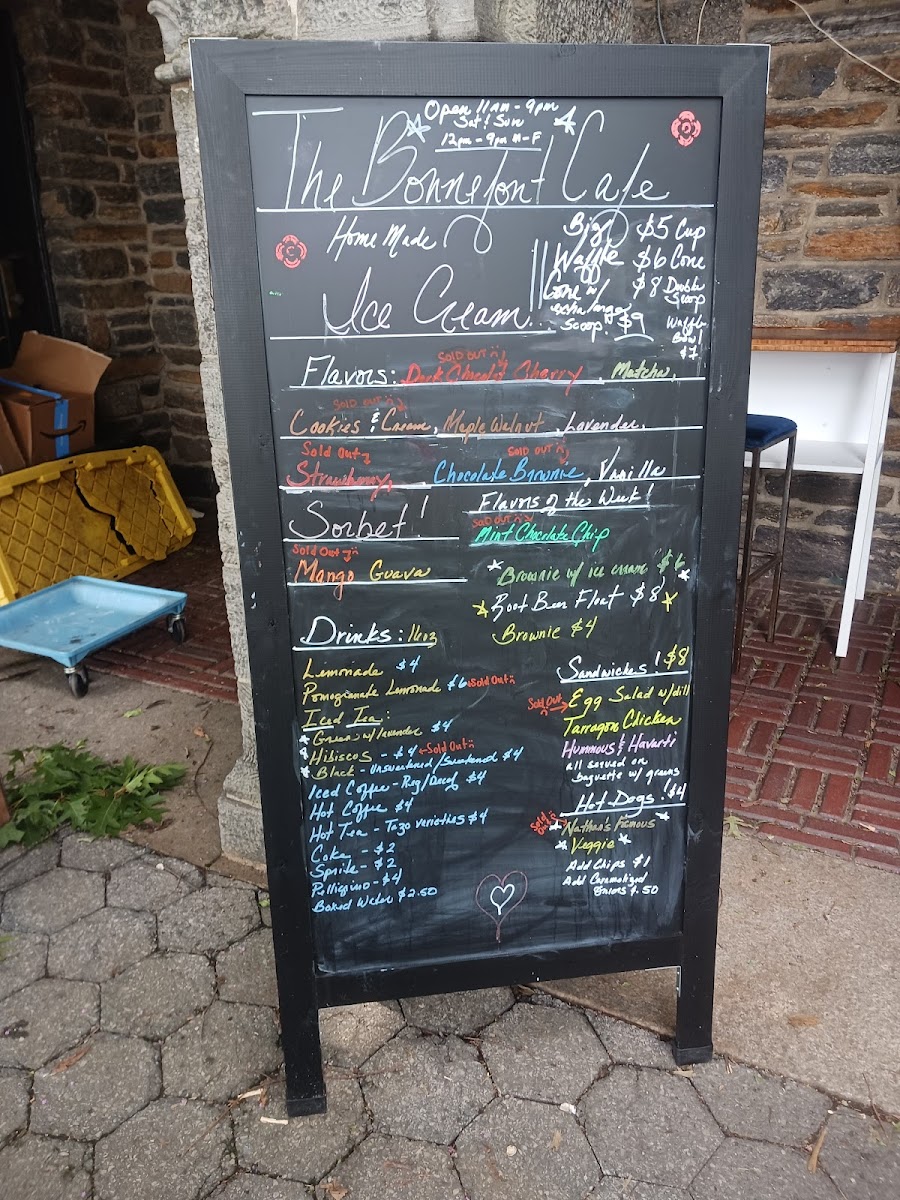 Open 11am - 9pm
Sat & Sun
12pm - 9pm M-F
The Bonnefont Cafe
Home Made
Ice Cream
Big $5 Cup
Waffle $6 Cone
Cone w/ $8 Double Scoop
extra large scoop $9
Waffle Bowl $7
SOLD OUT
Flavors: Dark Chocolate Cherry Matcha,
SOLD OUT
Cookies & Cream, Maple Walnut, Lavender,
Sold Out SOLD OUT
Strawberry, Chocolate Brownie, Vanilla
Sorbet!
Sold Out
Mango Guava
Flavors of the Week!
SOLD OUT
Mint Chocolate Chip
Brownie w/ ice cream $6
Root Beer Float $8
Brownie $4
Drinks: 16oz
Lemonade $4
Pomegranate Lemonade $6 Sold Out
Iced Tea:
Green w/lavender $4
Hibiscos - $4 Sold Out
Black - Unsweetened/Sweetened $4
Iced Coffee - Reg/Decaf $4
Hot Coffee $4
Hot Tea - Tazo varieties $4
Coke - $2
Sprite - $2
Pelligrino - $4
Boxed Water $2.50
Sandwiches! $8
Sold Out Egg Salad w/dill
Tarragon Chicken
Hummous & Havarti
all served on
baguette w/ greens
Hot Dogs! $4
Sold Out Nathan's Famous
Veggie
Add Chips $1
Add Caramelized
Onions $.50